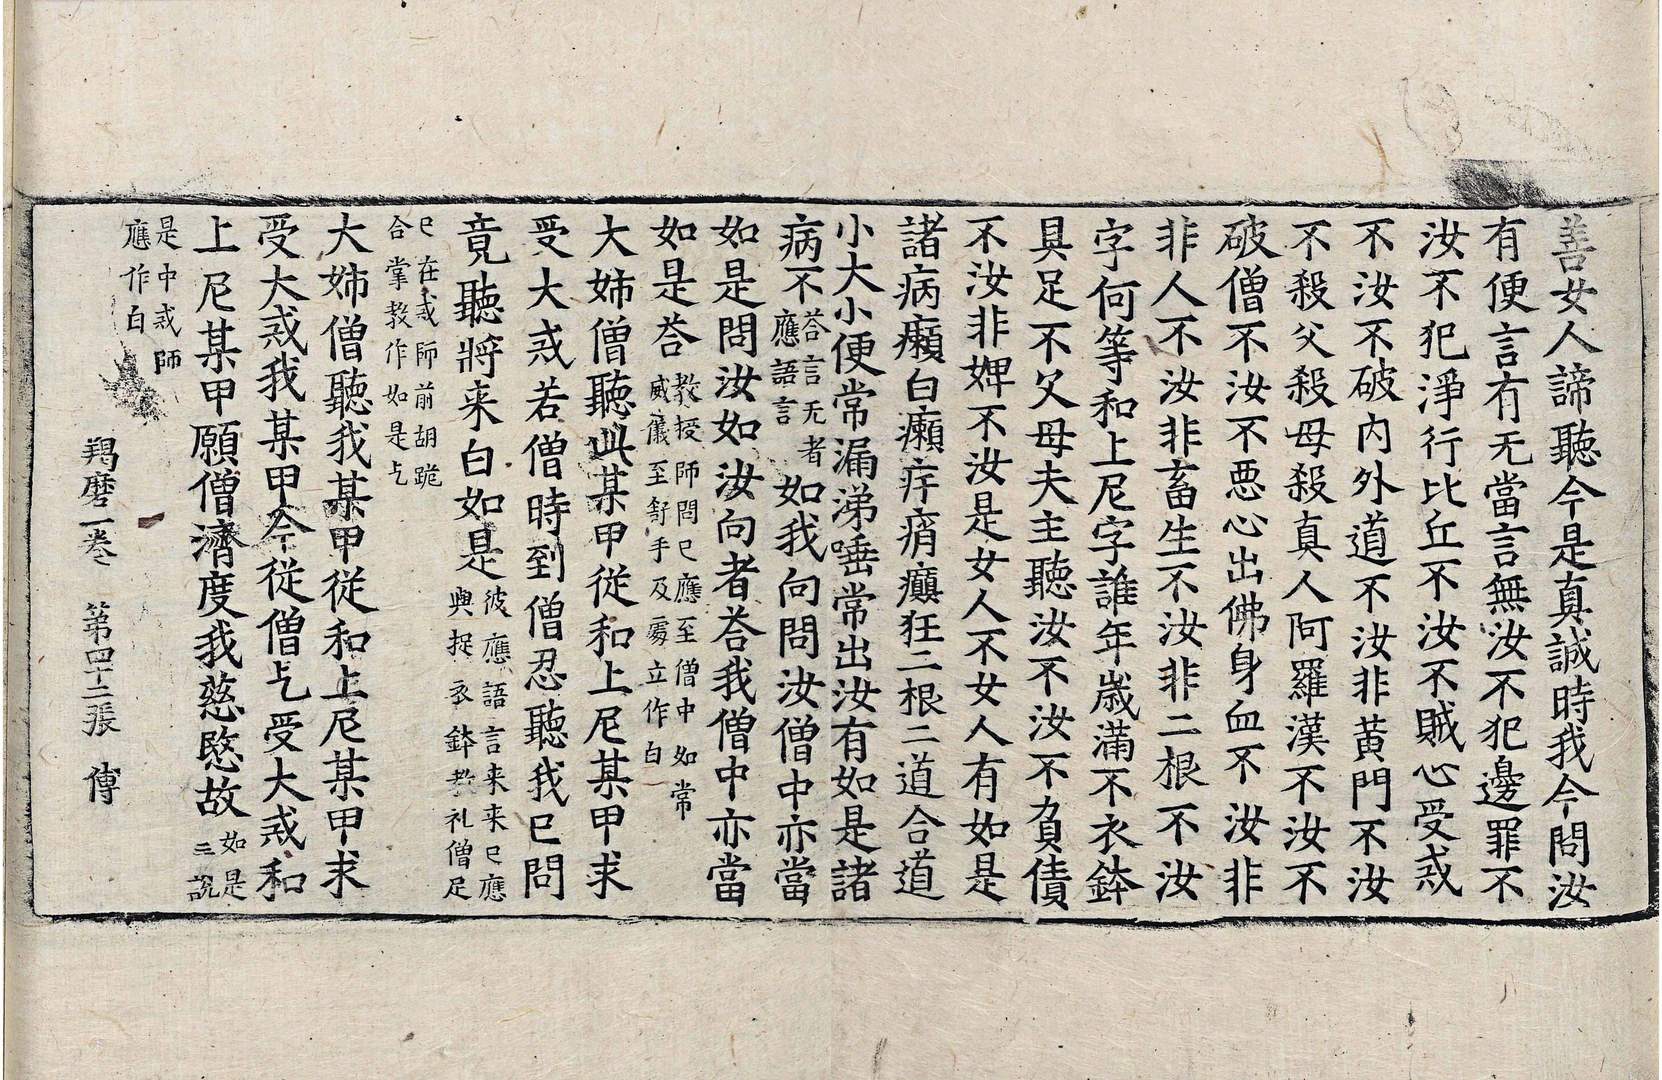 善女人諦聽今是真誠時我今問汝
有便言有无當言無汝不犯邊罪不
汝不犯淨行比丘不汝不賊心受戒
不汝不破內外道不汝非黃門不汝
不殺父殺母殺真人阿羅漢不汝不
破僧不汝不惡心出佛身血不汝非
非人不汝非畜生不汝非二根不汝
字何等和上尼字誰年歲滿不衣鉢
具足不父母夫主聽汝不汝不負債
不汝非婢不汝是女人不女人有如是
諸病癩白癩痒痟癲狂二根二道合道
小大小便常漏涕唾常出汝有如是諸
病不
荅言无者
應語言
如我向問汝僧中亦當
如是問汝如汝向者荅我僧中亦當
如是荅
教授師問已應至僧中如常
威儀至舒手及處立作白
大姉僧聽此某甲從和上尼某甲求
受大戒若僧時到僧忍聽我已問
竟聽將来白如是
彼應語言来来已應
與捉衣鉢教礼僧足
已在戒師前胡跪
合掌教作如是乞
大姉僧聽我某甲從和上尼某甲求
受大戒我某甲今從僧乞受大戒和
上尼某甲願僧濟度我慈愍故
如是
三說
是中戒師
應作白
羯磨一卷 第四十二張 傳